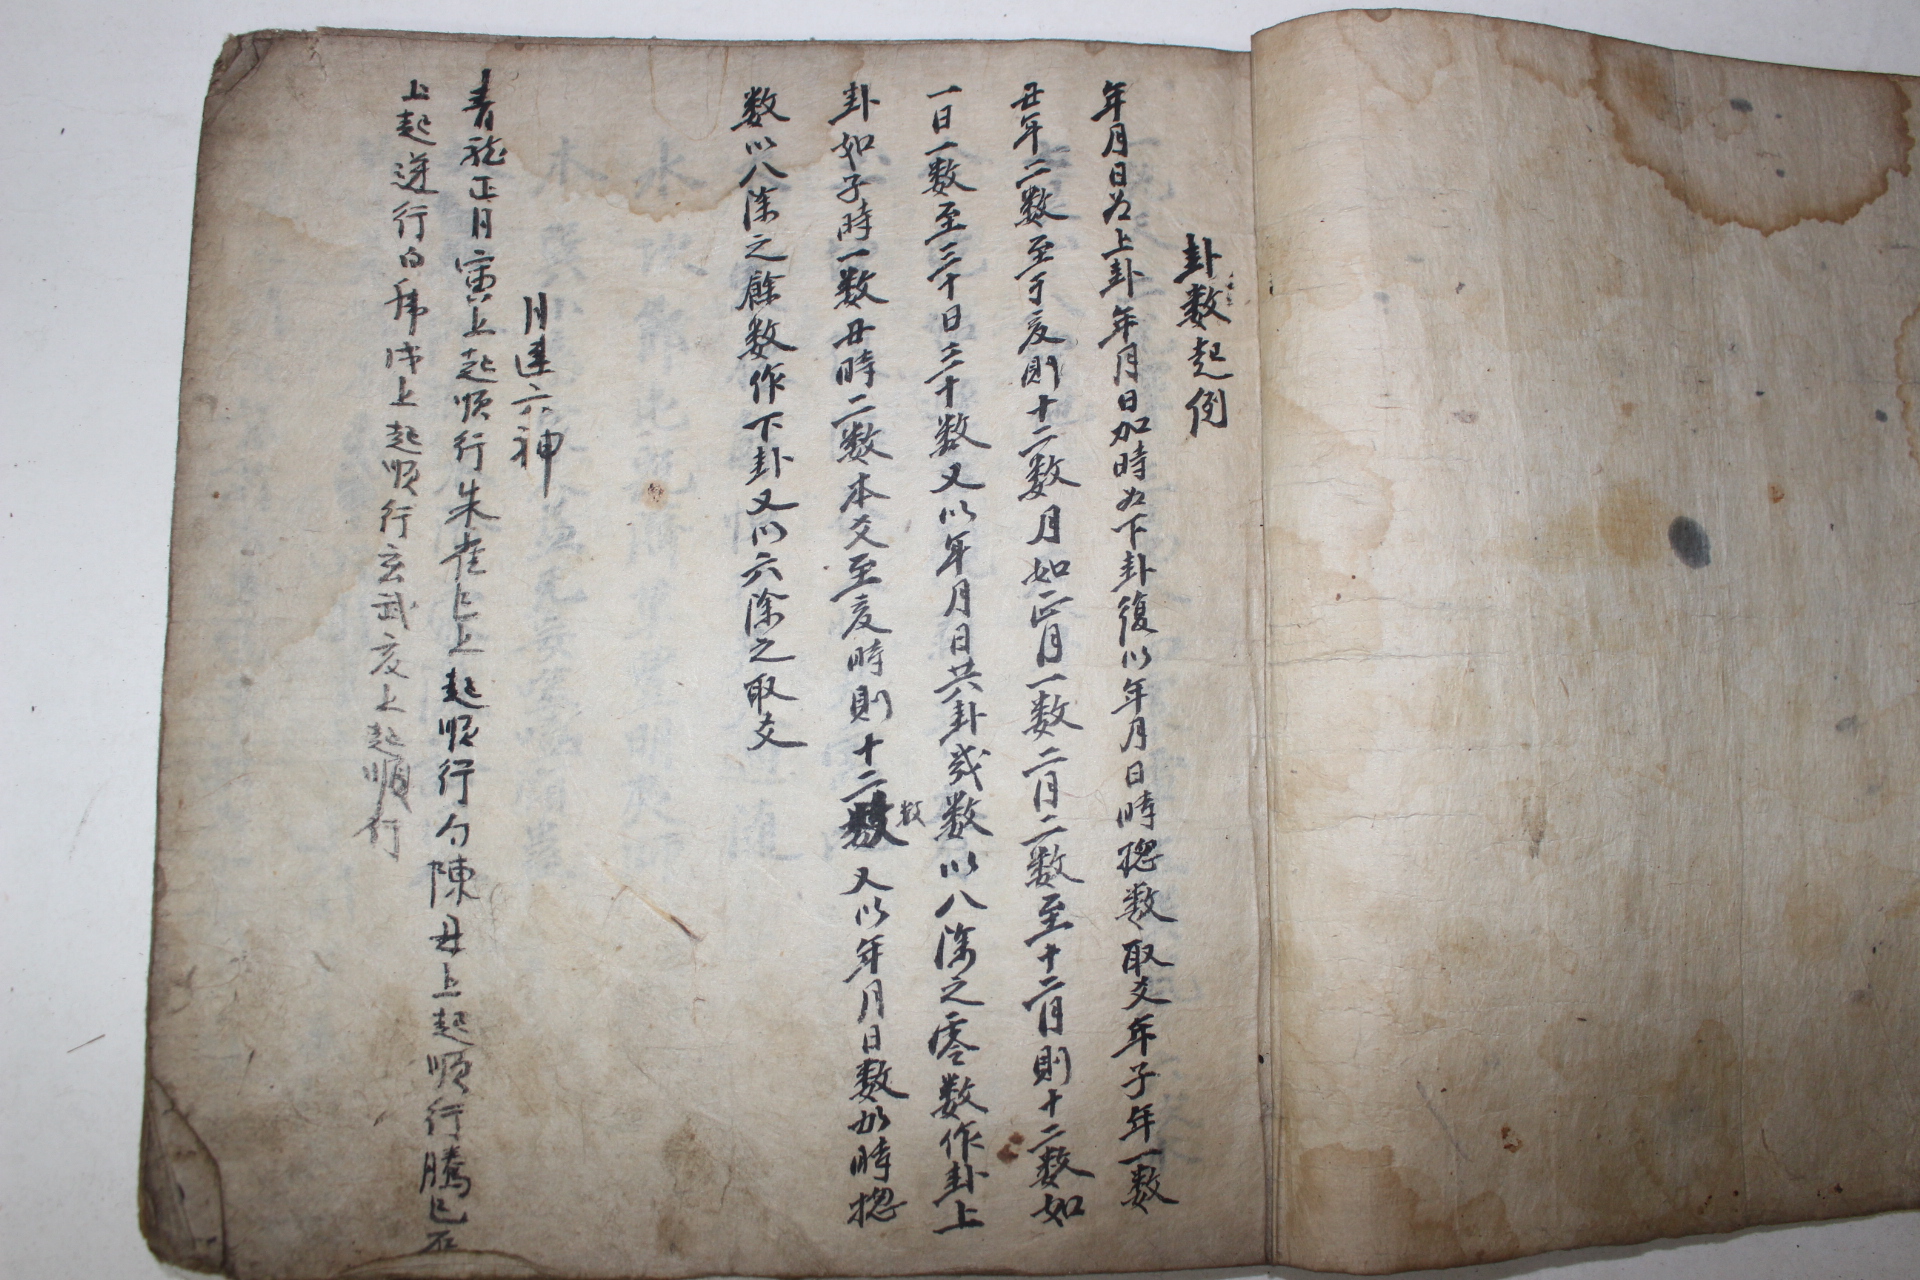 卦数起例
年月日为上卦年月日加時为下卦復以年月日時揔数取爻年子年一数
丑年二数至于亥則十二数月如正月一数二月二数至十二月則十二数如
一日一数至三十日三十数又以年月日共卦成数以八除之零数作卦上
卦如子時一数丑時二数本爻至亥時則十二数又以年月日数加時揔
数以八除之餘数作下卦又以六除之取爻
月建六神
青龍正月寅上起順行朱雀巳上起順行勾陳丑上起順行騰巳
上起逆行白乕上起順行玄武亥上起順行